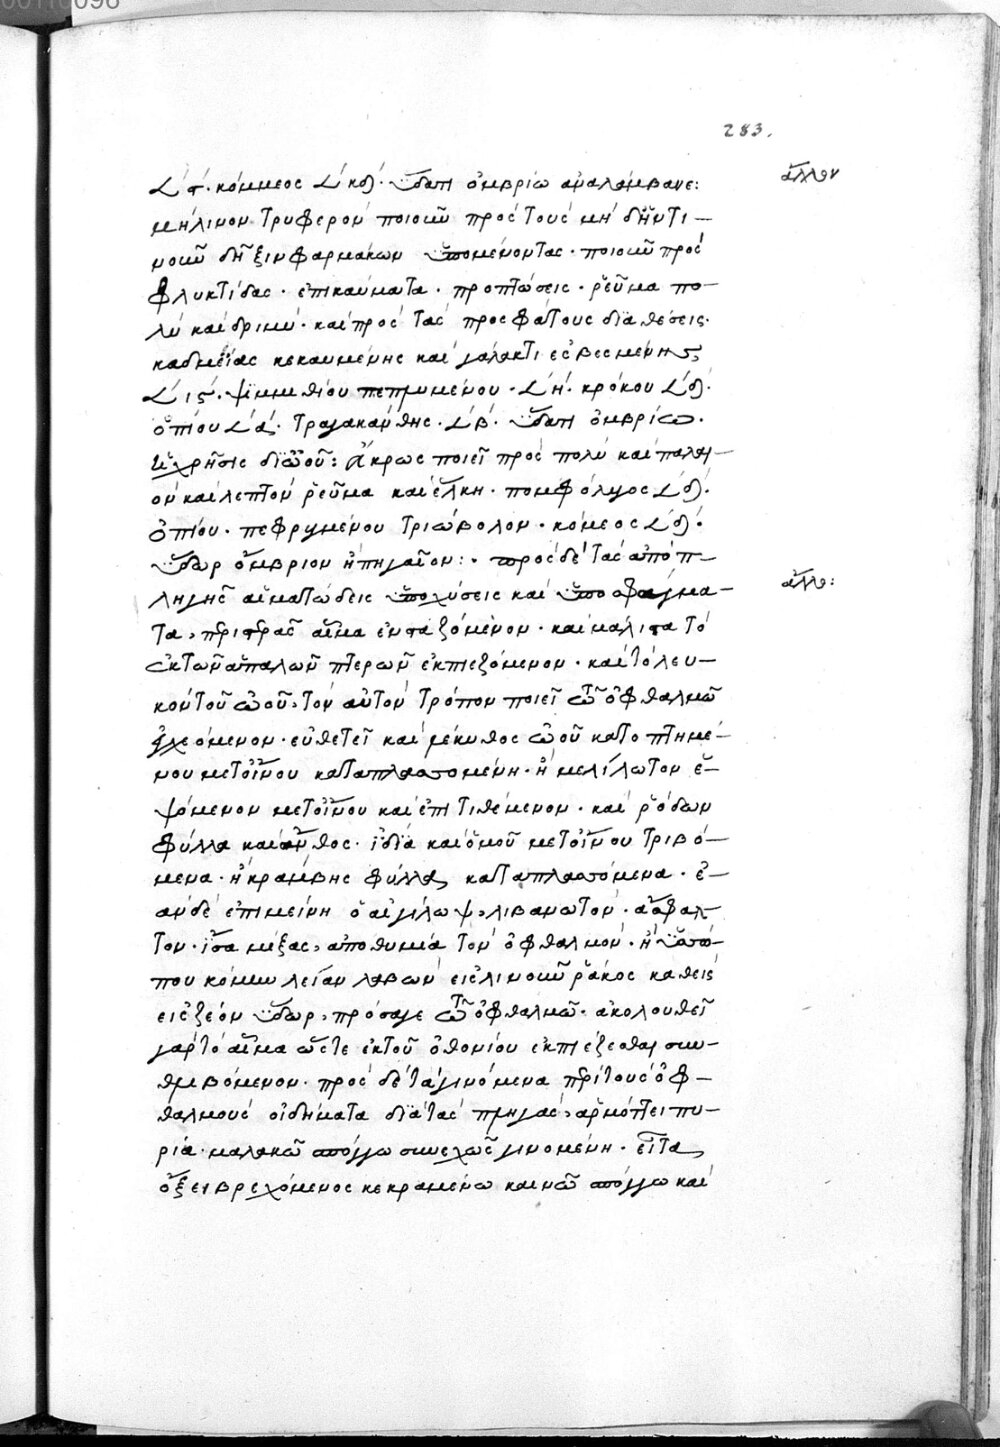 00110098
283.
ἄλλον
𐅻 ϛ´. κόμμεος 𐅻 κδ´. ὕδατι ὀμβρίω ἀναλάμβανε:
μήλινον τρυφερὸν ποιοῦν πρὸς τοὺς μὴ δῆντι–
νοῦν δῆξιν φαρμάκων ὑπομένοντας · ποιοῦν πρὸς
φλυκτίδας · ἐπικαύματα · προπτώσεις · ῥεῦμα πο–
λὺ καὶ δριμὺ · καὶ πρὸς τὰς προσφάτους διαθέσεις·
καδμείας κεκαυμένης καὶ γάλακτι ἐσβεσμένης
𐅻 ιϛ´. ψιμμυθίου πεπλυμένου · 𐅻 η´. κρόκου 𐅻 δ´.
ὀπίου 𐅻 α´. τραγακάνθης · 𐅻 β´. ὕδατι ὀμβρίω.
ἡ χρῆσις δι' ὠοῦ: ἄκρως ποιεῖ πρὸς πολὺ καὶ παλαι–
ὸν καὶ λεπτὸν ῥεῦμα καὶ ἕλκη · πομφόλυγος 𐅻 δ´.
ὀπίου · πεφρυγμένου τριώβολον · κόμεος 𐅻 δ´.
ὕδωρ ὄμβριον ἢ πηγαῖον: · πρὸς δὲ τὰς ἀπὸ π–
ἄλλο:
ληγῆς αἱματώδεις ὑποχύσεις καὶ ὑποσφάγμα–
τα, περιστερᾶς αἷμα ἐνσταζόμενον · καὶ μάλιστα τὸ
ἐκ τῶν ἁπαλῶν πτερῶν ἐκπιεζόμενον · καὶ τὸ λευ–
κὸν τοῦ ὠοῦ, τὸν αὐτὸν τρόπον ποιεῖ τῶ ὀφθαλμῶ
ἐγχεόμενον · εὐθετεῖ καὶ λέκυθος ὠοῦ κατοπτημέ–
νου μετ' οἴνου καταπλασσομένη · ἢ μελίλωτον ἑ–
ψόμενον μετ' οἴνου καὶ ἐπιτιθέμενον · καὶ ῥόδων
φύλλα καὶ ἄνθος · ἰδία καὶ ὁμοῦ μετ' οἴνου τριβό–
μενα · ἢ κράμβης φύλλα, καταπλασσόμενα · ἐ–
ὰν δὲ ἐπιμείνη ὁ αἰγίλωψ, λιβανωτὸν · ἄσφαλ–
τον · ἴσα μίξας, ἀποθυμία τὸν ὀφθαλμόν · ἢ ὑσσώ–
που κόμην λείαν λαβὼν εἰς λινοῦν ῥάκος καθεὶς
εἰς ζεὸν ὕδωρ, πρόσαγε τῶ ὀφθαλμῶ. ἀκολουθεῖ
γὰρ τὸ αἷμα ὥστε ἐκ τοῦ ὀθονίου ἐκπιέζεσθαι συν–
θλιβόμενον · πρὸς δὲ τὰ γινόμενα περὶ τοὺς ὀφ–
θαλμοὺς οἰδήματα διὰ τὰς πληγὰς, ἁρμόττει πυ–
ρία · μαλακῶ σπόγγω συνεχῶς γινομένη · εἶτα,
ὄξει βρεχόμενος κεκραμένω καινῶ σπόγγω καὶ